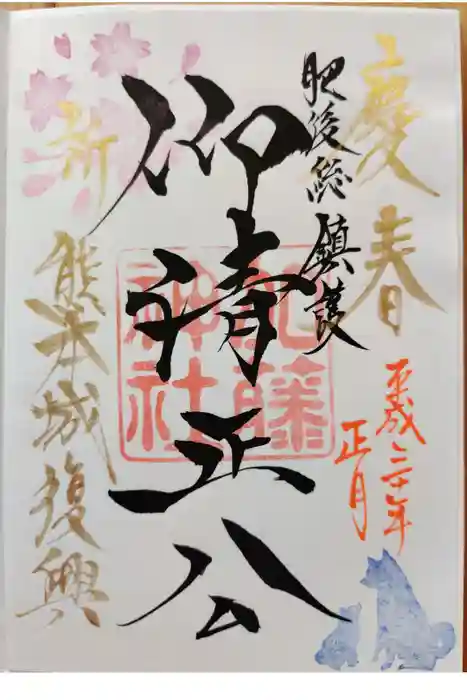 慶春
平成三十年
正月
肥後総鎮護
仰清正公
加藤
神社
新
熊本城復興